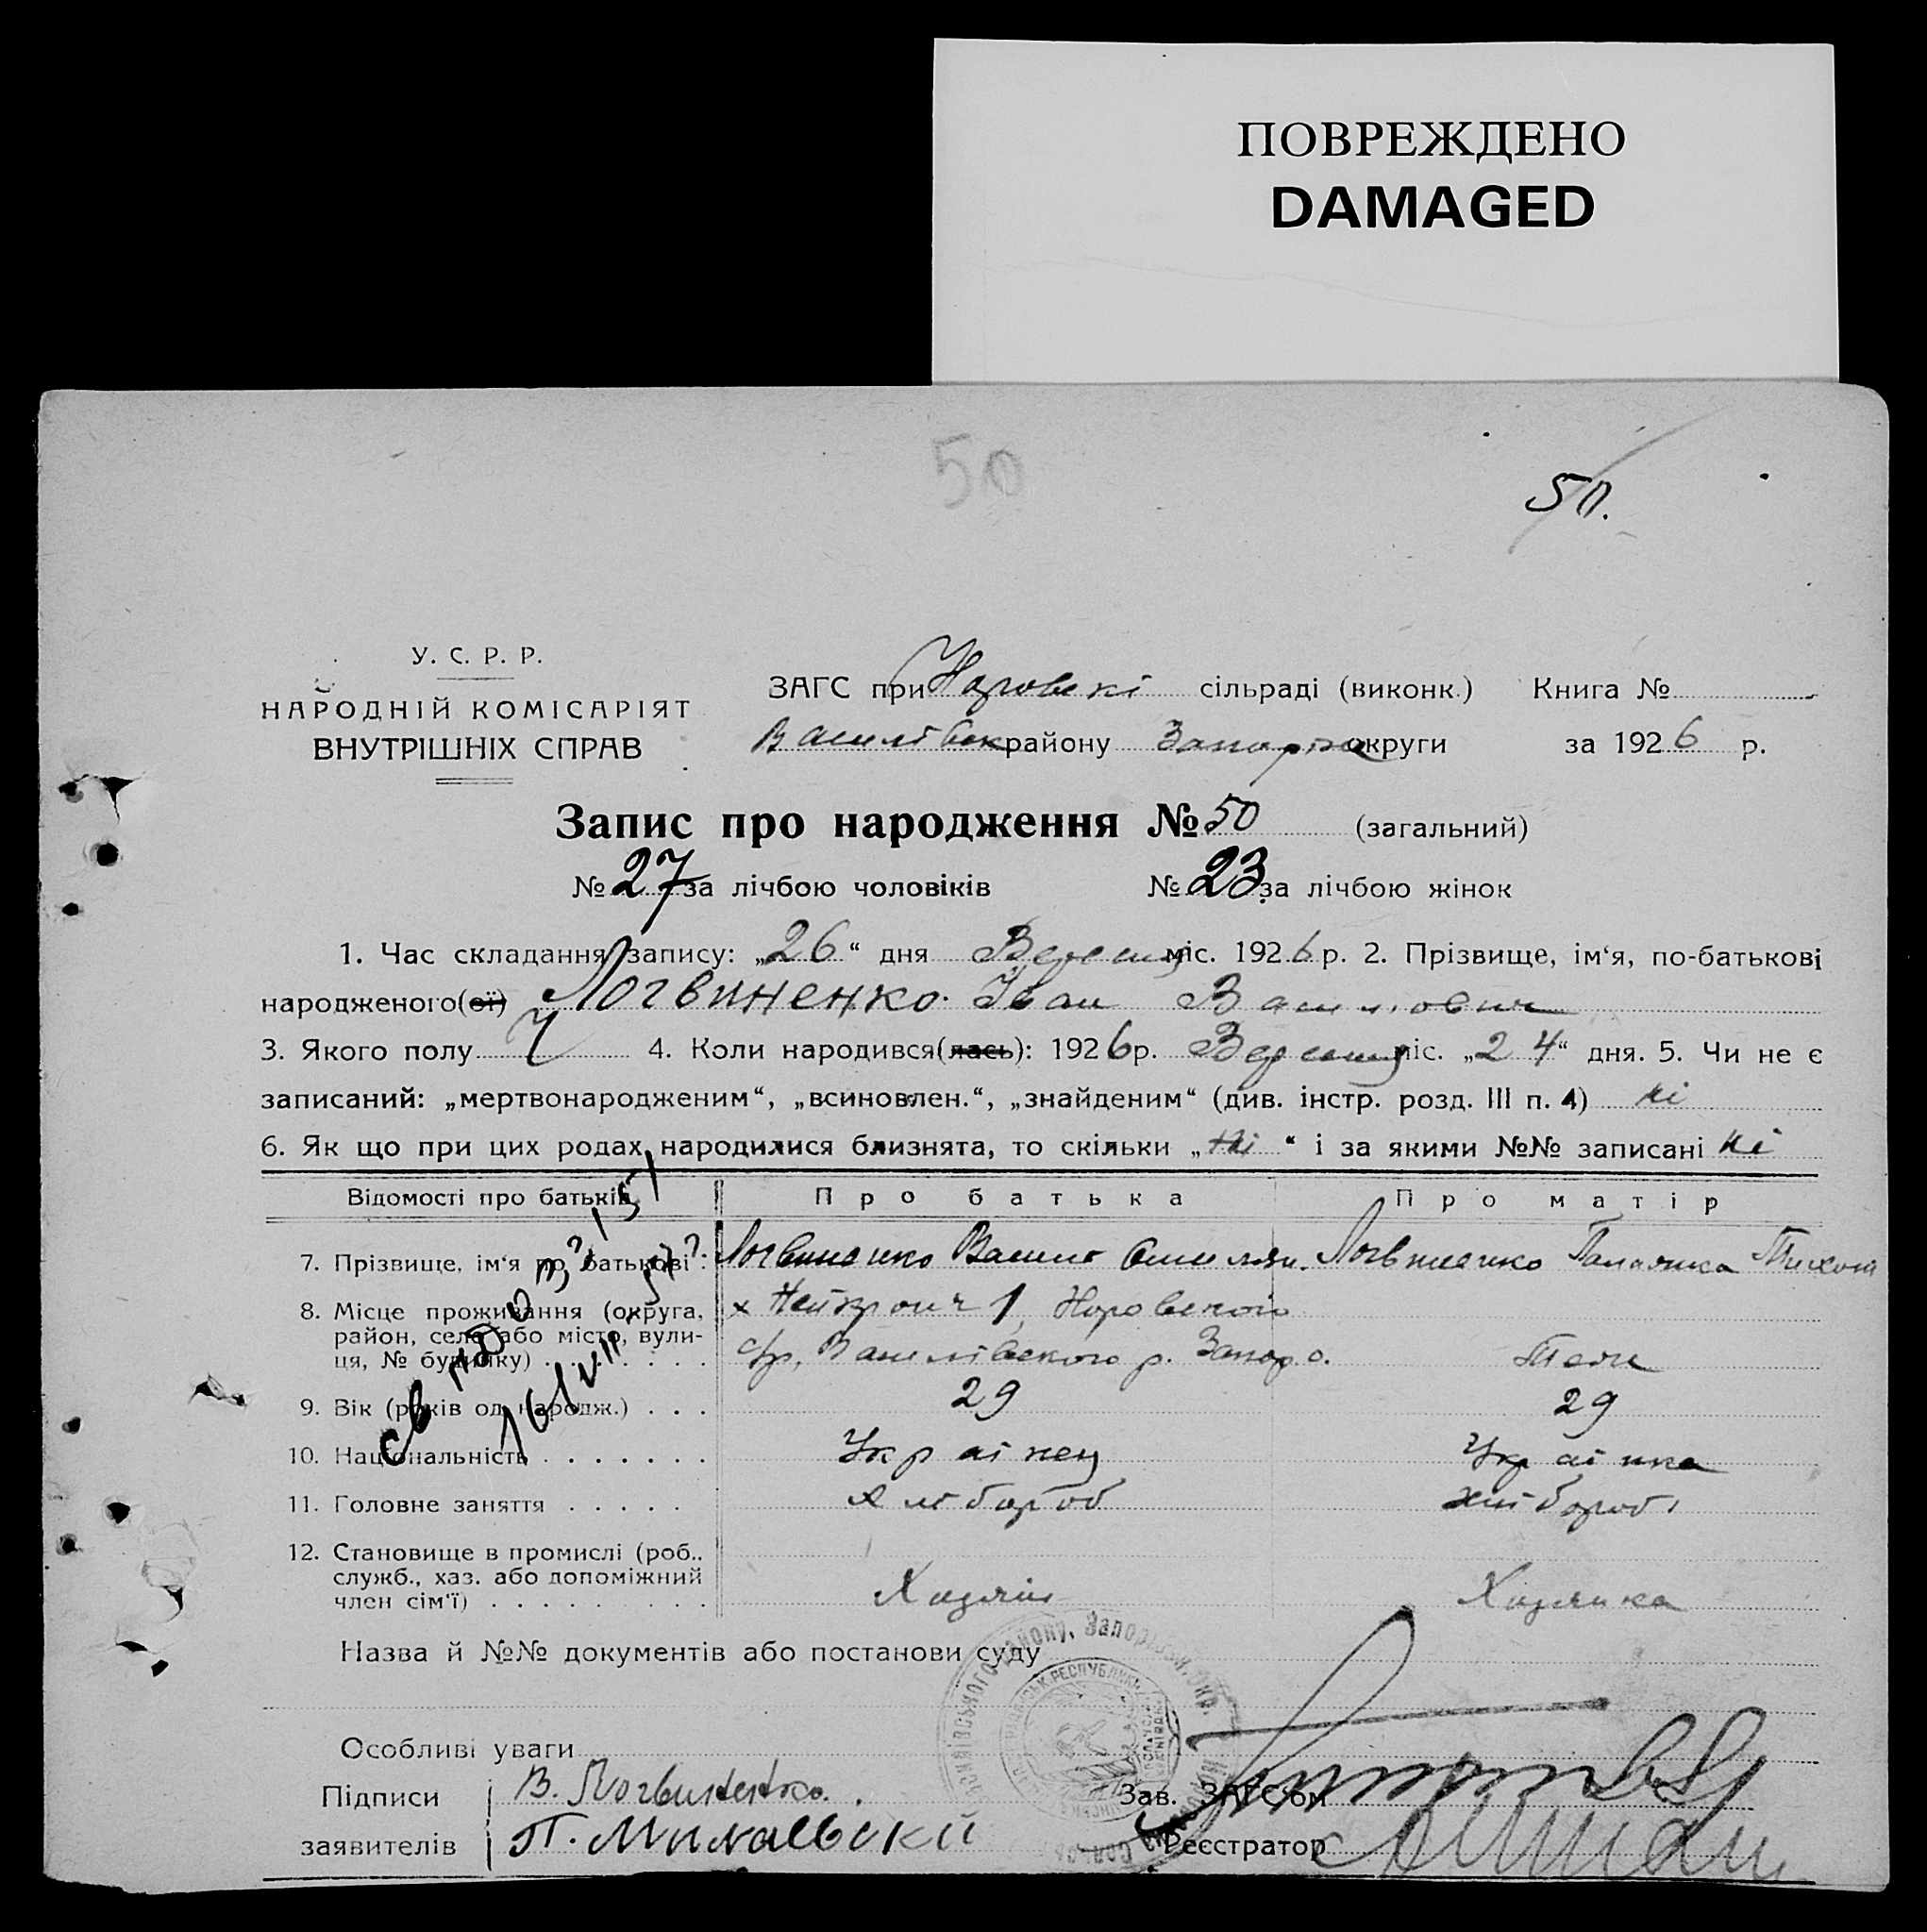 ПОВРЕЖДЕНО
DAMAGED
50
50.
У. С. Р. Р.
НАРОДНІЙ КОМІСАРІЯТ
ВНУТРІШНІХ СПРАВ
ЗАГС при сільраді (виконк.) Книга №
Василівск району Запорiз округи за 1926 р.
Запис про народження № 50 (загальний)
№ 27 за лічбою чоловіків № 23 за лічбою жінок
1. Час складання запису: „26“ дня Вересня міс. 1926 р. 2. Прізвище, ім‘я, по-батькові
народженого(ої) Логвиненко Іван Васильович
3. Якого полу Ч 4. Коли народився(лась): 1926 р. Вересня міс. „24“ дня. 5. Чи не є
записаний: „мертвонародженим“, „всиновлен.“, „знайденим“ (див. інстр. розд. III п. 4) ні
6. Як що при цих родах народилися близнята, то скільки „ні“ і за якими №№ записані ні
Відомості про батьків Про батька Про матір
7. Прізвище, ім‘я по батькові: Логвиненко Василь Омелян. Логвиненко Палажка Тихон
8. Місце проживання (округа, х 1,
район, село або місто, вули-
ця, № будинку) . . . . . . . с/р, Василівського р. Запор. о. Теж
9. Вік (років од народж.) . . . 29 29
10. Національність . . . . . . . Українец Українка
11. Головне заняття . . . . . Хлібороб хлібороб
12. Становище в промислі (роб.,
служб., хаз. або допоміжний
член сім‘ї) . . . . . . . . . Хазяїн Хазяйка
Назва й №№ документів або постанови суду
Особливі уваги
Підписи В. Логвиненко. Зав. ЗАГС‘ом
заявителів П. Реєстратор